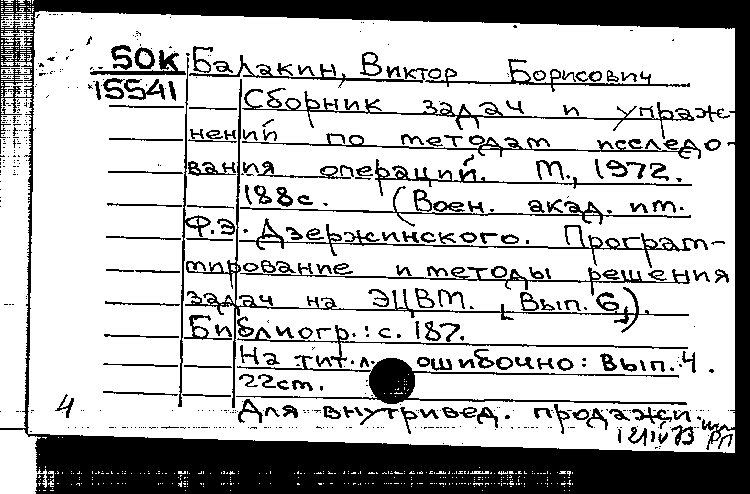 50К Балакин, Виктор Борисович
15541
Сборник задач и упраж-
нений по методам исследо-
вания операций. М., 1972.
188с. (Воен. акад. им.
Ф.Э. Дзержинского. Програм-
мирование и методы решения
задач на ЭЦВМ. [Вып. 6]).
Библиогр.: с. 187.
На тит. л. ошибочно: Вып. 4.
22см.
Для внутривед. продажи.
4